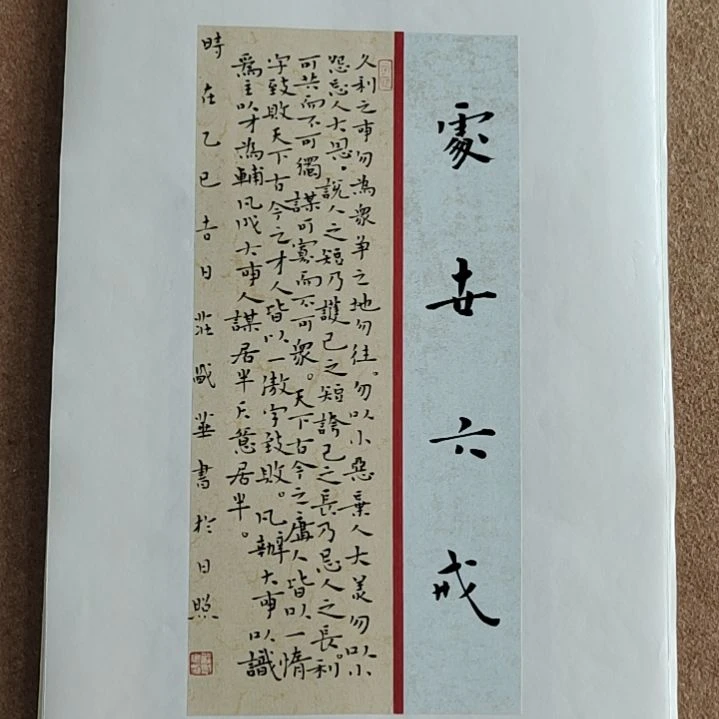 處世六戒
久利之事勿為衆爭之地勿往。勿以小惡棄人大美勿以小
怨忘人大恩。說人之短乃護己之短誇己之長乃忌人之長。利
可共而不可獨謀可寡而不可衆。天下古今之庸人皆以一惰
字致敗天下古今之才人皆以一傲字致敗。凡辦大事以識
為主以才為輔凡成大事人謀居半天意居半。
時在乙巳吉日莊盛華書於日照